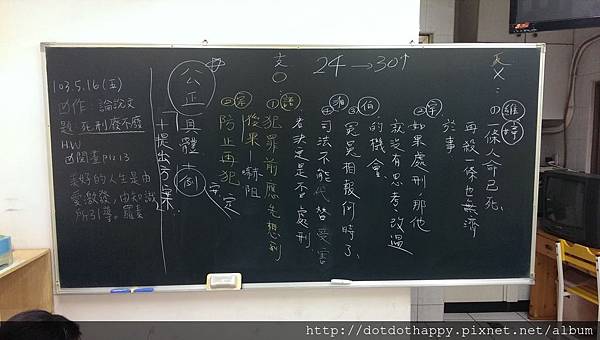 反
X：①雅婷 一條人命已死、
再殺一條也無濟
於事
②宗 如果處刑那他
就沒有思考、改過
的機會。
③伯 冤冤相報何時了、
④ 司法不能代替受害
者決定是否處刑
24→30↑
支
O
① 犯罪前應先想到
後果—嚇阻
②宗 防止再犯
公正 具體
+提出方案
103.5.16(五)
作：論說文
題 死刑廢不廢
HW
P12.13
美好的人生是由
愛激發，由知識
所引導。羅素
http://dotdothappy.pixnet.net/album